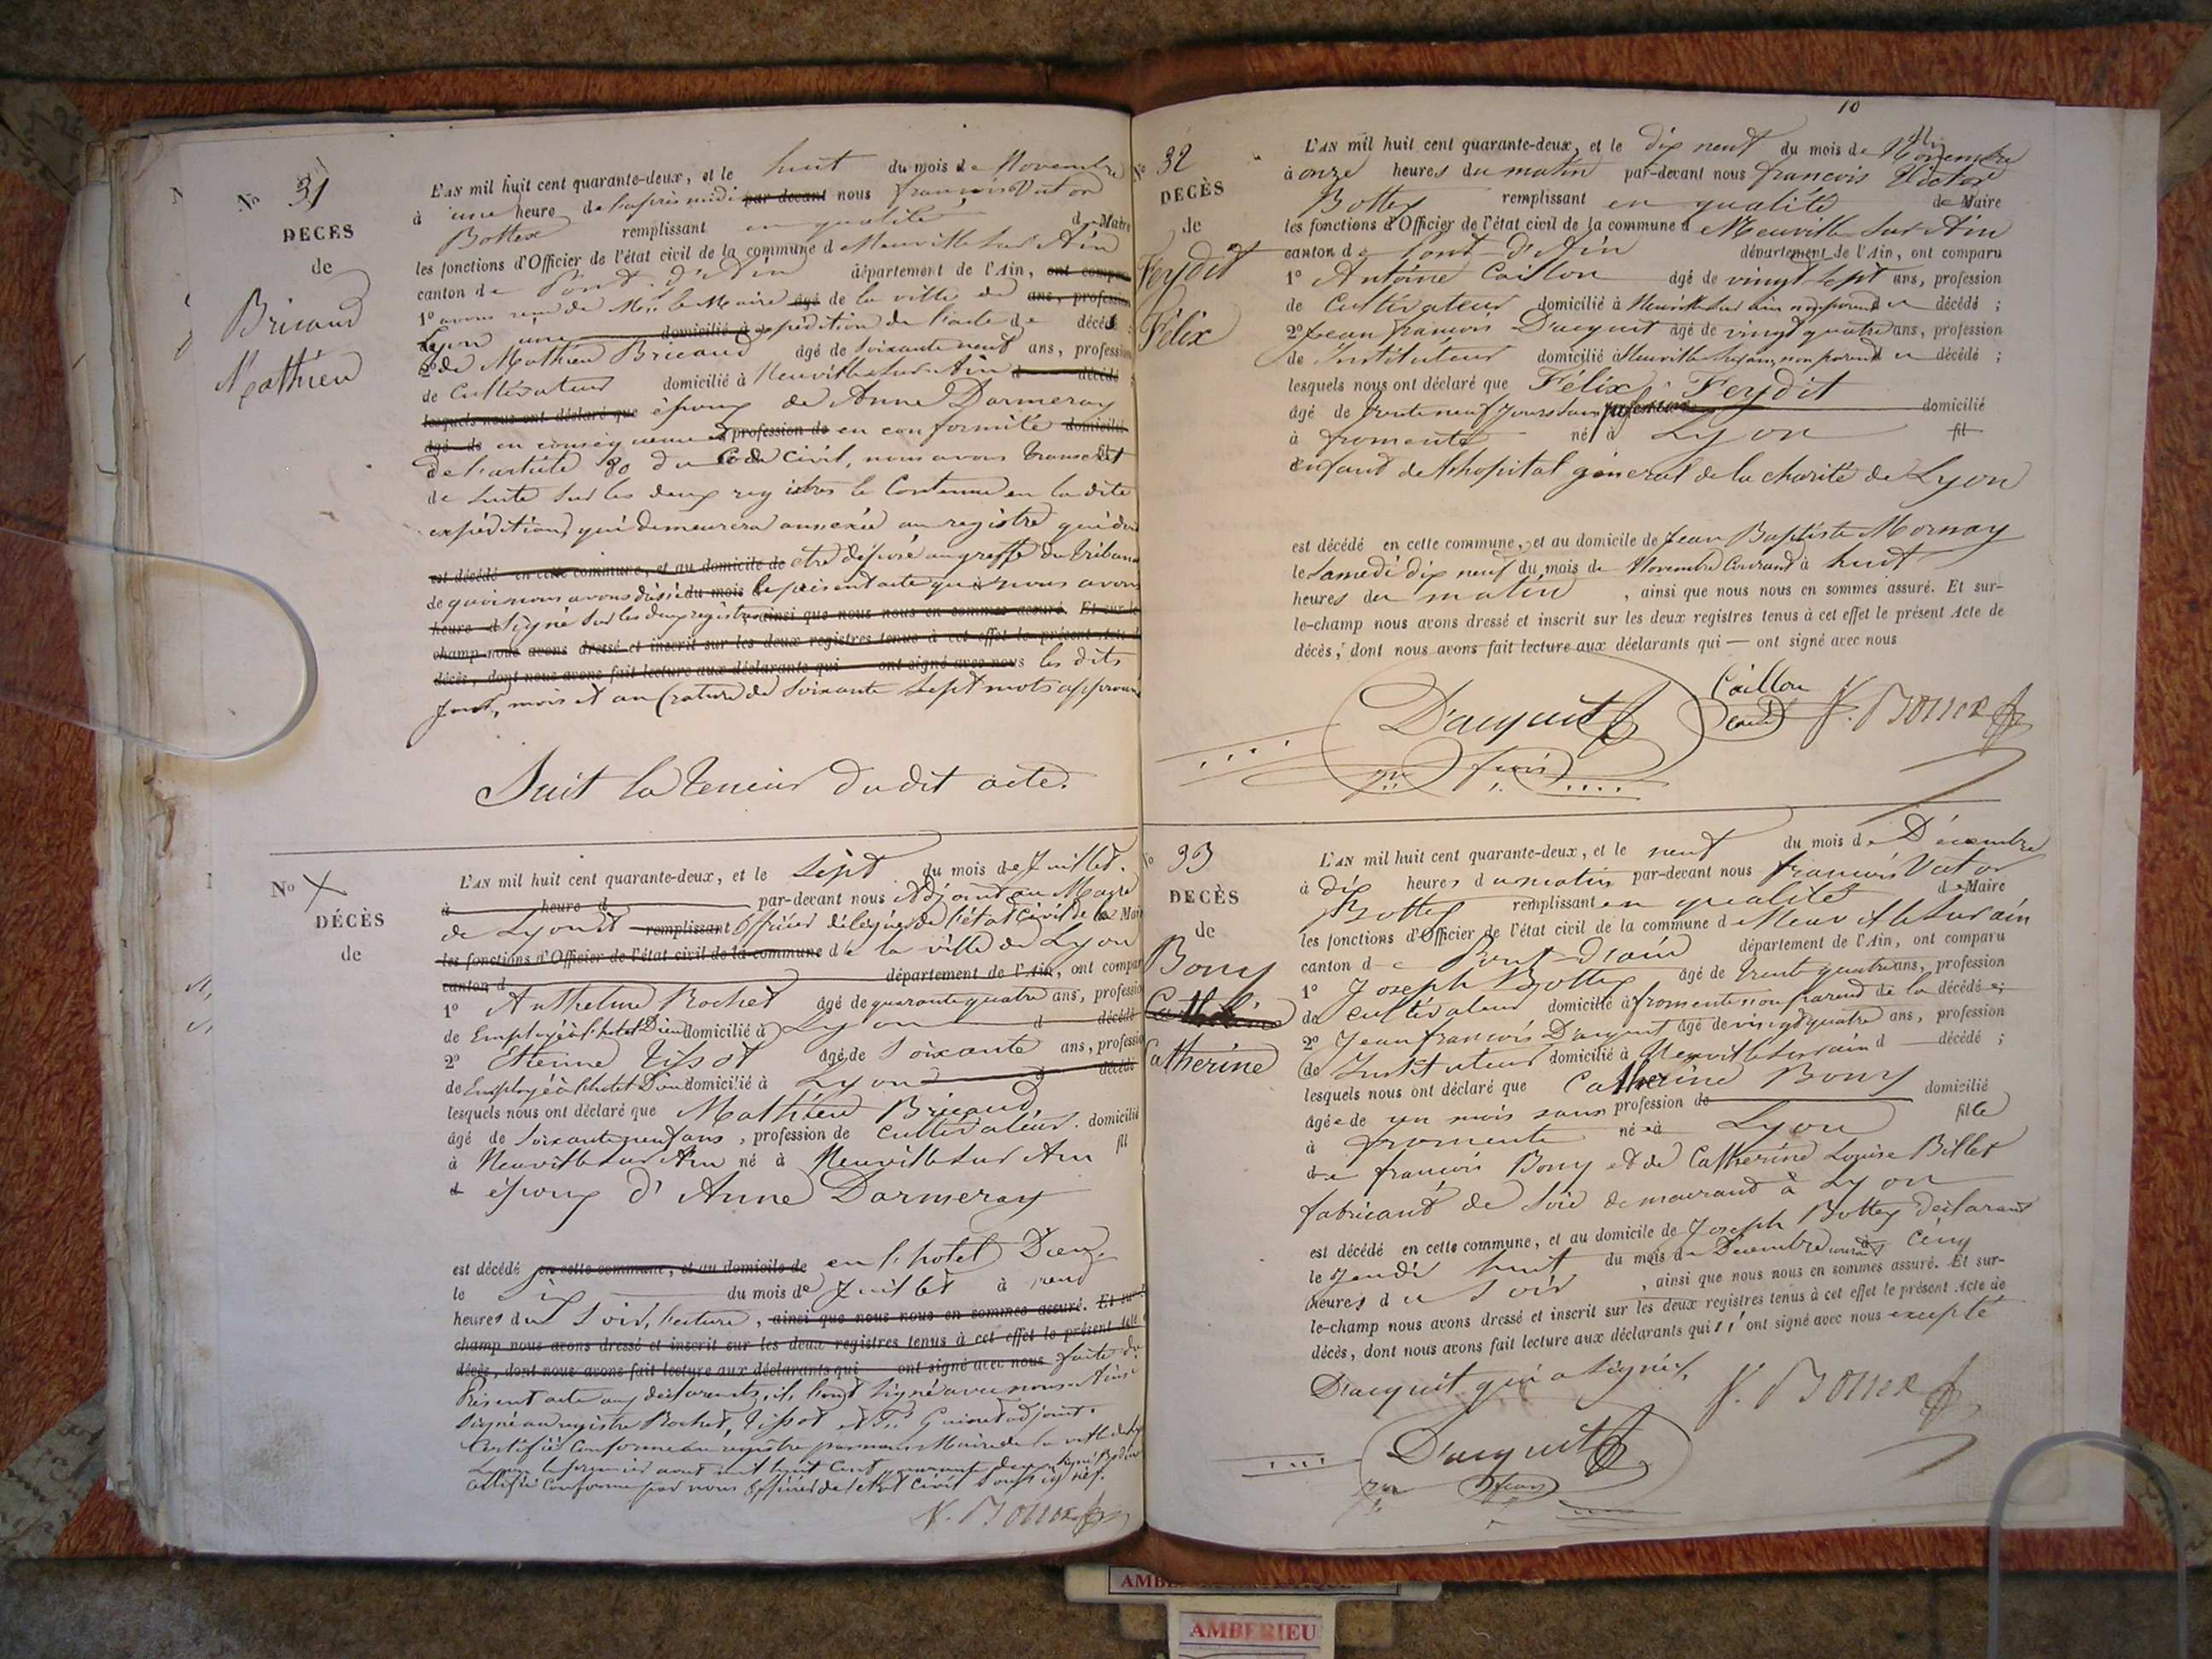 No 31
DECES
de
Bricaud
Mathieu
L'AN mil huit cent quarante-deux, et le huit du mois de Novembre
à une heure de l'après midi par devant nous françois Victor
Bottex remplissant en qualité de Maire
les fonctions d'Officier de l'état civil de la commune d Neuville sur Ain
canton de Pont-d'Ain département de l'Ain, ont compa
1º avons reçu de Mr. le Maire âgé de la ville de ans, profession
Lyon une domicilié à expédition de l'acte de décés
2º de Mathieu Bricaud âgé de soixante neuf ans, profession
de Cultivateur domicilié à Neuville sur Ain d décédé
lesquels nous ont déclaré que époux de Anne Darmeray
âgé de en conséquence et profession de en conformité domicilié
de l'article 80 du Code Civil, nous avons transcrit
de suite sur les deux registres le Contenu en la dite
expédition, qui demeurera annexée au registre qui doit
est décédé en cette commune, et au domicile de etre déposé au greffe du tribunal
de quoi nous avons du mois le présent acte que nous avons
heure d signé sur les deux registres ainsi que nous nous en sommes assuré. Et sur-le
champ nous avons dressé et inscrit sur les deux registres tenus à cet effet le présent Acte d
décès, dont nous avons fait lecture aux déclarants qui ont signé avec nous les dits
jour, mois et an (rature de soixante sept mots approuvé
Suit la teneur du dit acte.
No X
DÉCÈS
de
L'AN mil huit cent quarante-deux, et le sept du mois de Juillet.
à heure d par-devant nous Adjoint au Maire
de Lyon et remplissant Officier délégué de l'état Civil de la Mai
les fonctions d'Officier de l'état civil de la commune de la ville de Lyon
canton d département de l'Ain, ont compar
1º Anthelme Rochet âgé de quarante quatre ans, profession
de Employé à l'hotel Dieu domicilié à Lyon d décédé
2º Etienne Tissot âgé de soixante ans, profession
de Employé à l'hotel Dieu domicilié à Lyon d décédé
lesquels nous ont déclaré que Mathieu Bricaud
âgé de soixante neuf ans, profession de Cultivateur. domicilié
à Neuville sur Ain né à Neuville sur Ain fil
d époux d'Anne Darmeray
est décédé en cette commune, et au domicile de en l'hotel Dieu
le six du mois de Juillet à neuf
heures du soir, lecture, ainsi que nous nous en sommes assuré. Et sur-l
champ nous avons dressé et inscrit sur les deux registres tenus à cet effet le présent Acte
décès, dont nous avons fait lecture aux déclarants qui ont signé avec nous faite du
Présent acte aux déclarants, ils l'ont signé avec nous. Ainsi
Signé au registre Rochet, Tissot et Guinet adjoint.
Certifié Conforme au registre par nous Maire de la ville de
Lyon le premier aout mil huit Cent quarante deux signé
Certifié Conforme par nous Officier de l'état Civil soussigné.
V. Bottex
10
No 32
DÉCÈS
de
Feydit
Félix
L'AN mil huit cent quarante-deux, et le dix neuf du mois de Novembre
à onze heures du matin par-devant nous françois Victor
Bottex remplissant en qualité de Maire
les fonctions d'Officier de l'état civil de la commune d Neuville sur Ain
canton de Pont-d'Ain département de l'Ain, ont comparu
1º Antoine Caillon âgé de vingt sept ans, profession
de Cultivateur domicilié à Neuville sur ain non parend du décédé ;
2º Jean françois Dacquit âgé de vingt quatre ans, profession
de Instituteur domicilié à Neuville sur ain, non parend du décédé ;
lesquels nous ont déclaré que Félix Feydit
âgé de trente neuf jours sans profession domicilié
à fromente né à Lyon fil
enfant de l'hopital général de la charité de Lyon
est décédé en cette commune, et au domicile de Jean Baptiste Mornay
le Samedi dix neuf du mois de Novembre Courant à huit
heures du matin, ainsi que nous nous en sommes assuré. Et sur-
le-champ nous avons dressé et inscrit sur les deux registres tenus à cet effet le présent Acte de
décès, dont nous avons fait lecture aux déclarants qui — ont signé avec nous
Dacquit Caillon V. Bottex
No 33
DECÈS
de
Bony
Catherine
Catherine
L'AN mil huit cent quarante-deux, et le neuf du mois de Décembre
à dix heures du matin par-devant nous françois Victor
Bottex remplissant en qualité de Maire
les fonctions d'Officier de l'état civil de la commune d Neuville sur ain
canton de Pont-d'ain département de l'Ain, ont comparu
1º Joseph Bottex âgé de trente quatre ans, profession
de cultivateur domicilié à fromente non parend de la décédée ;
2º Jean françois Dacquit âgé de vingt quatre ans, profession
de Instituteur domicilié à Neuville sur ain d décédé ;
lesquels nous ont déclaré que Catherine Bony
âgée de un mois sans profession de domicilié
à fromente née à Lyon fille
de françois Bony et de Catherine Louise Billet
fabricant de soie demeurant à Lyon
est décédé en cette commune, et au domicile de Joseph Bottex déclarant
le Jeudi huit du mois de Décembre courant à cinq
heures du soir, ainsi que nous nous en sommes assuré. Et sur-
le-champ nous avons dressé et inscrit sur les deux registres tenus à cet effet le présent Acte de
décès, dont nous avons fait lecture aux déclarants qui ont signé avec nous excepté
Dacquit qui a signé.
V. Bottex
Dacquit
AMBERIEU